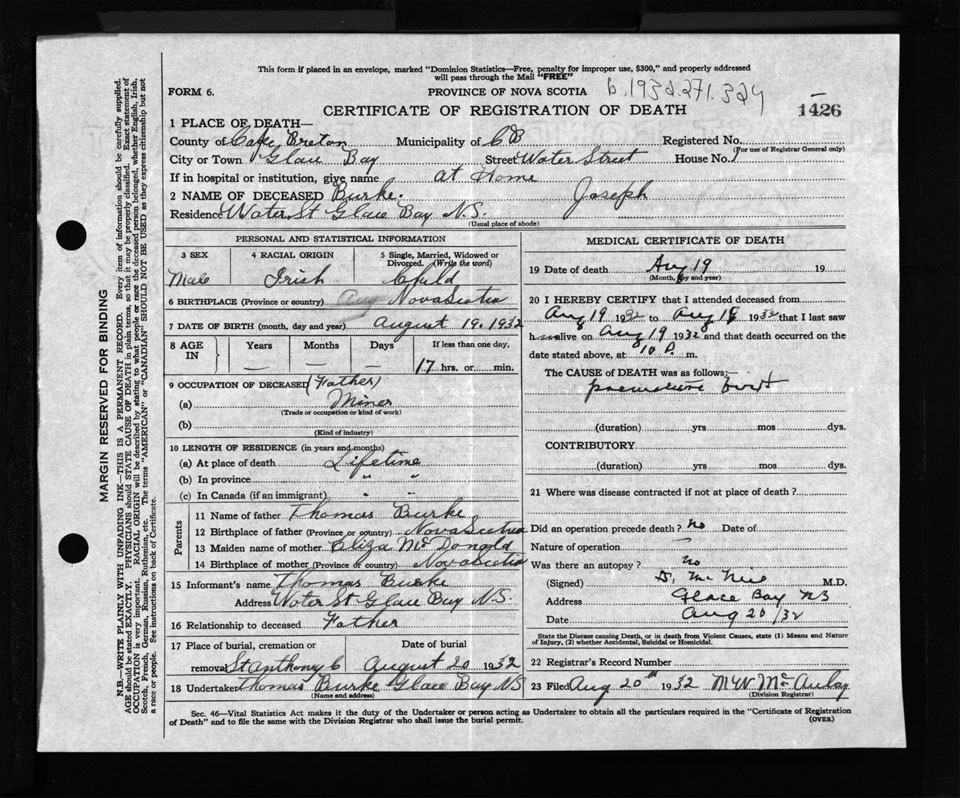 This form if placed in an envelope, marked "Dominion Statistics—Free, penalty for improper use, $300," and properly addressed
will pass through the Mail "FREE"
FORM 6. PROVINCE OF NOVA SCOTIA 1932.271.324
CERTIFICATE OF REGISTRATION OF DEATH 1426
1 PLACE OF DEATH—
County of Cape Breton Municipality of CB Registered No.
(For use of Registrar General only)
City or Town Glace Bay Street Water Street House No.
If in hospital or institution, give name at Home
2 NAME OF DECEASED Burke. Joseph
Residence Water St Glace Bay N.S.
(Usual place of abode)
PERSONAL AND STATISTICAL INFORMATION
3 SEX 4 RACIAL ORIGIN 5 Single, Married, Widowed or
Divorced. (Write the word)
Male Irish Child
6 BIRTHPLACE (Province or country) Aug Nova Scotia
7 DATE OF BIRTH (month, day and year) August 19. 1932
8 AGE IN Years Months Days If less than one day,
— — — 17 hrs. or min.
9 OCCUPATION OF DECEASED (Father)
(a) Miner
(Trade or occupation or kind of work)
(b)
(Kind of industry)
10 LENGTH OF RESIDENCE (in years and months)
(a) At place of death Lifetime
(b) In province " "
(c) In Canada (if an immigrant) " "
Parents
11 Name of father Thomas Burke
12 Birthplace of father (Province or country) Nova Scotia
13 Maiden name of mother Eliza McDonald
14 Birthplace of mother (Province or country) Nova Scotia
15 Informant's name Thomas Burke
Address Water St Glace Bay N.S.
16 Relationship to deceased Father
17 Place of burial, cremation or Date of burial
removal St Anthony C August 20 1932
18 Undertaker Thomas Burke Glace Bay NS
(Name and address)
MEDICAL CERTIFICATE OF DEATH
19 Date of death Aug 19 19
(Month, day and year)
20 I HEREBY CERTIFY that I attended deceased from
Aug 19 1932 to Aug 1932 that I last saw
h alive on Aug 19 1932 and that death occurred on the
date stated above, at 10 m.
The CAUSE of DEATH was as follows:—
premature birth
(duration) yrs mos dys.
CONTRIBUTORY
(duration) yrs mos dys.
21 Where was disease contracted if not at place of death?
Did an operation precede death? no Date of
Nature of operation —
Was there an autopsy? no
(Signed) M.D.
Address Glace Bay NS
Date Aug 20/32
State the Disease causing Death, or in death from Violent Causes, state (1) Means and Nature
of Injury, (2) whether Accidental, Suicidal or Homicidal.
22 Registrar's Record Number
23 Filed Aug 20th 1932 McAulay
(Division Registrar)
Sec. 46—Vital Statistics Act makes it the duty of the Undertaker or person acting as Undertaker to obtain all the particulars required in the "Certificate of Registration
of Death" and to file the same with the Division Registrar who shall issue the burial permit. (OVER)
MARGIN RESERVED FOR BINDING
N.B.—WRITE PLAINLY WITH UNFADING INK—THIS IS A PERMANENT RECORD. Every item of information should be carefully supplied.
AGE should be stated EXACTLY. PHYSICIANS should STATE CAUSE OF DEATH in plain terms, so that it may be properly classified. Exact statement of
OCCUPATION is very important. RACIAL ORIGIN will be described by stating to what people or race the deceased person belonged, whether English, Irish,
Scotch, French, German, Russian, Ruthenian, etc. The terms "AMERICAN" or "CANADIAN" SHOULD NOT BE USED as they express citizenship but not
a race or people. See instructions on back of Certificate.